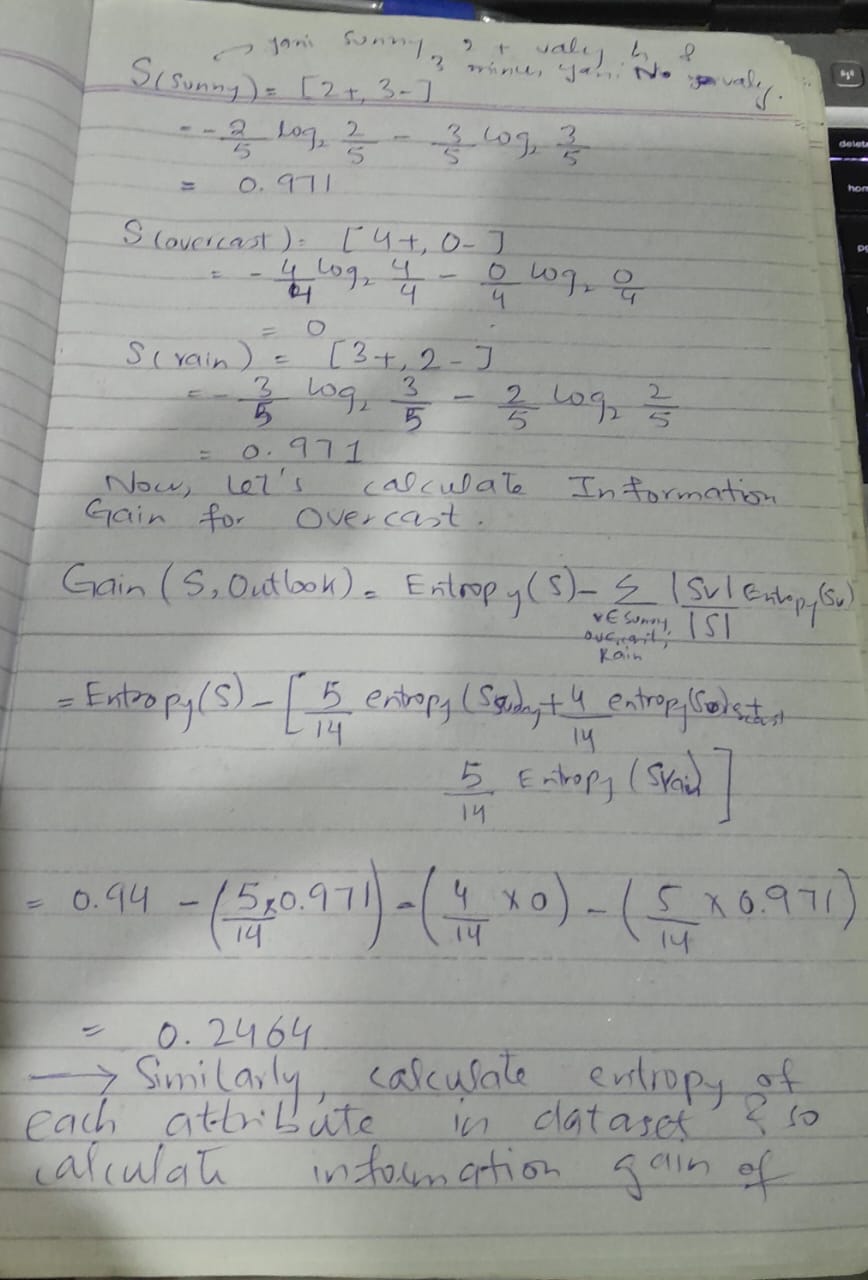 → yani sunny, 2 + valey h &
3 minus yani No valey.
S(sunny) = [2+, 3-]
= - 2/5 log₂ 2/5 - 3/5 log₂ 3/5
= 0.971
S(overcast) = [4+, 0-]
= - 4/4 log₂ 4/4 - 0/4 log₂ 0/4
= 0
S(rain) = [3+, 2-]
= - 3/5 log₂ 3/5 - 2/5 log₂ 2/5
= 0.971
Now, Let's calculate Information
Gain for Overcast.
Gain (S, Outlook) = Entropy(S) - Σ |Sv|/|S| Entropy(Sv)
v∈ Sunny,
overcast,
Rain
= Entropy(S) - [5/14 entropy (Ssunny) + 4/14 entropy(Sovercast) +
5/14 Entropy (Srain)]
= 0.94 - (5/14 x 0.971) - (4/14 x 0) - (5/14 x 0.971)
= 0.2464
→ Similarly, calculate entropy of
each attribute in dataset & so
calculate information gain of
delete
hom